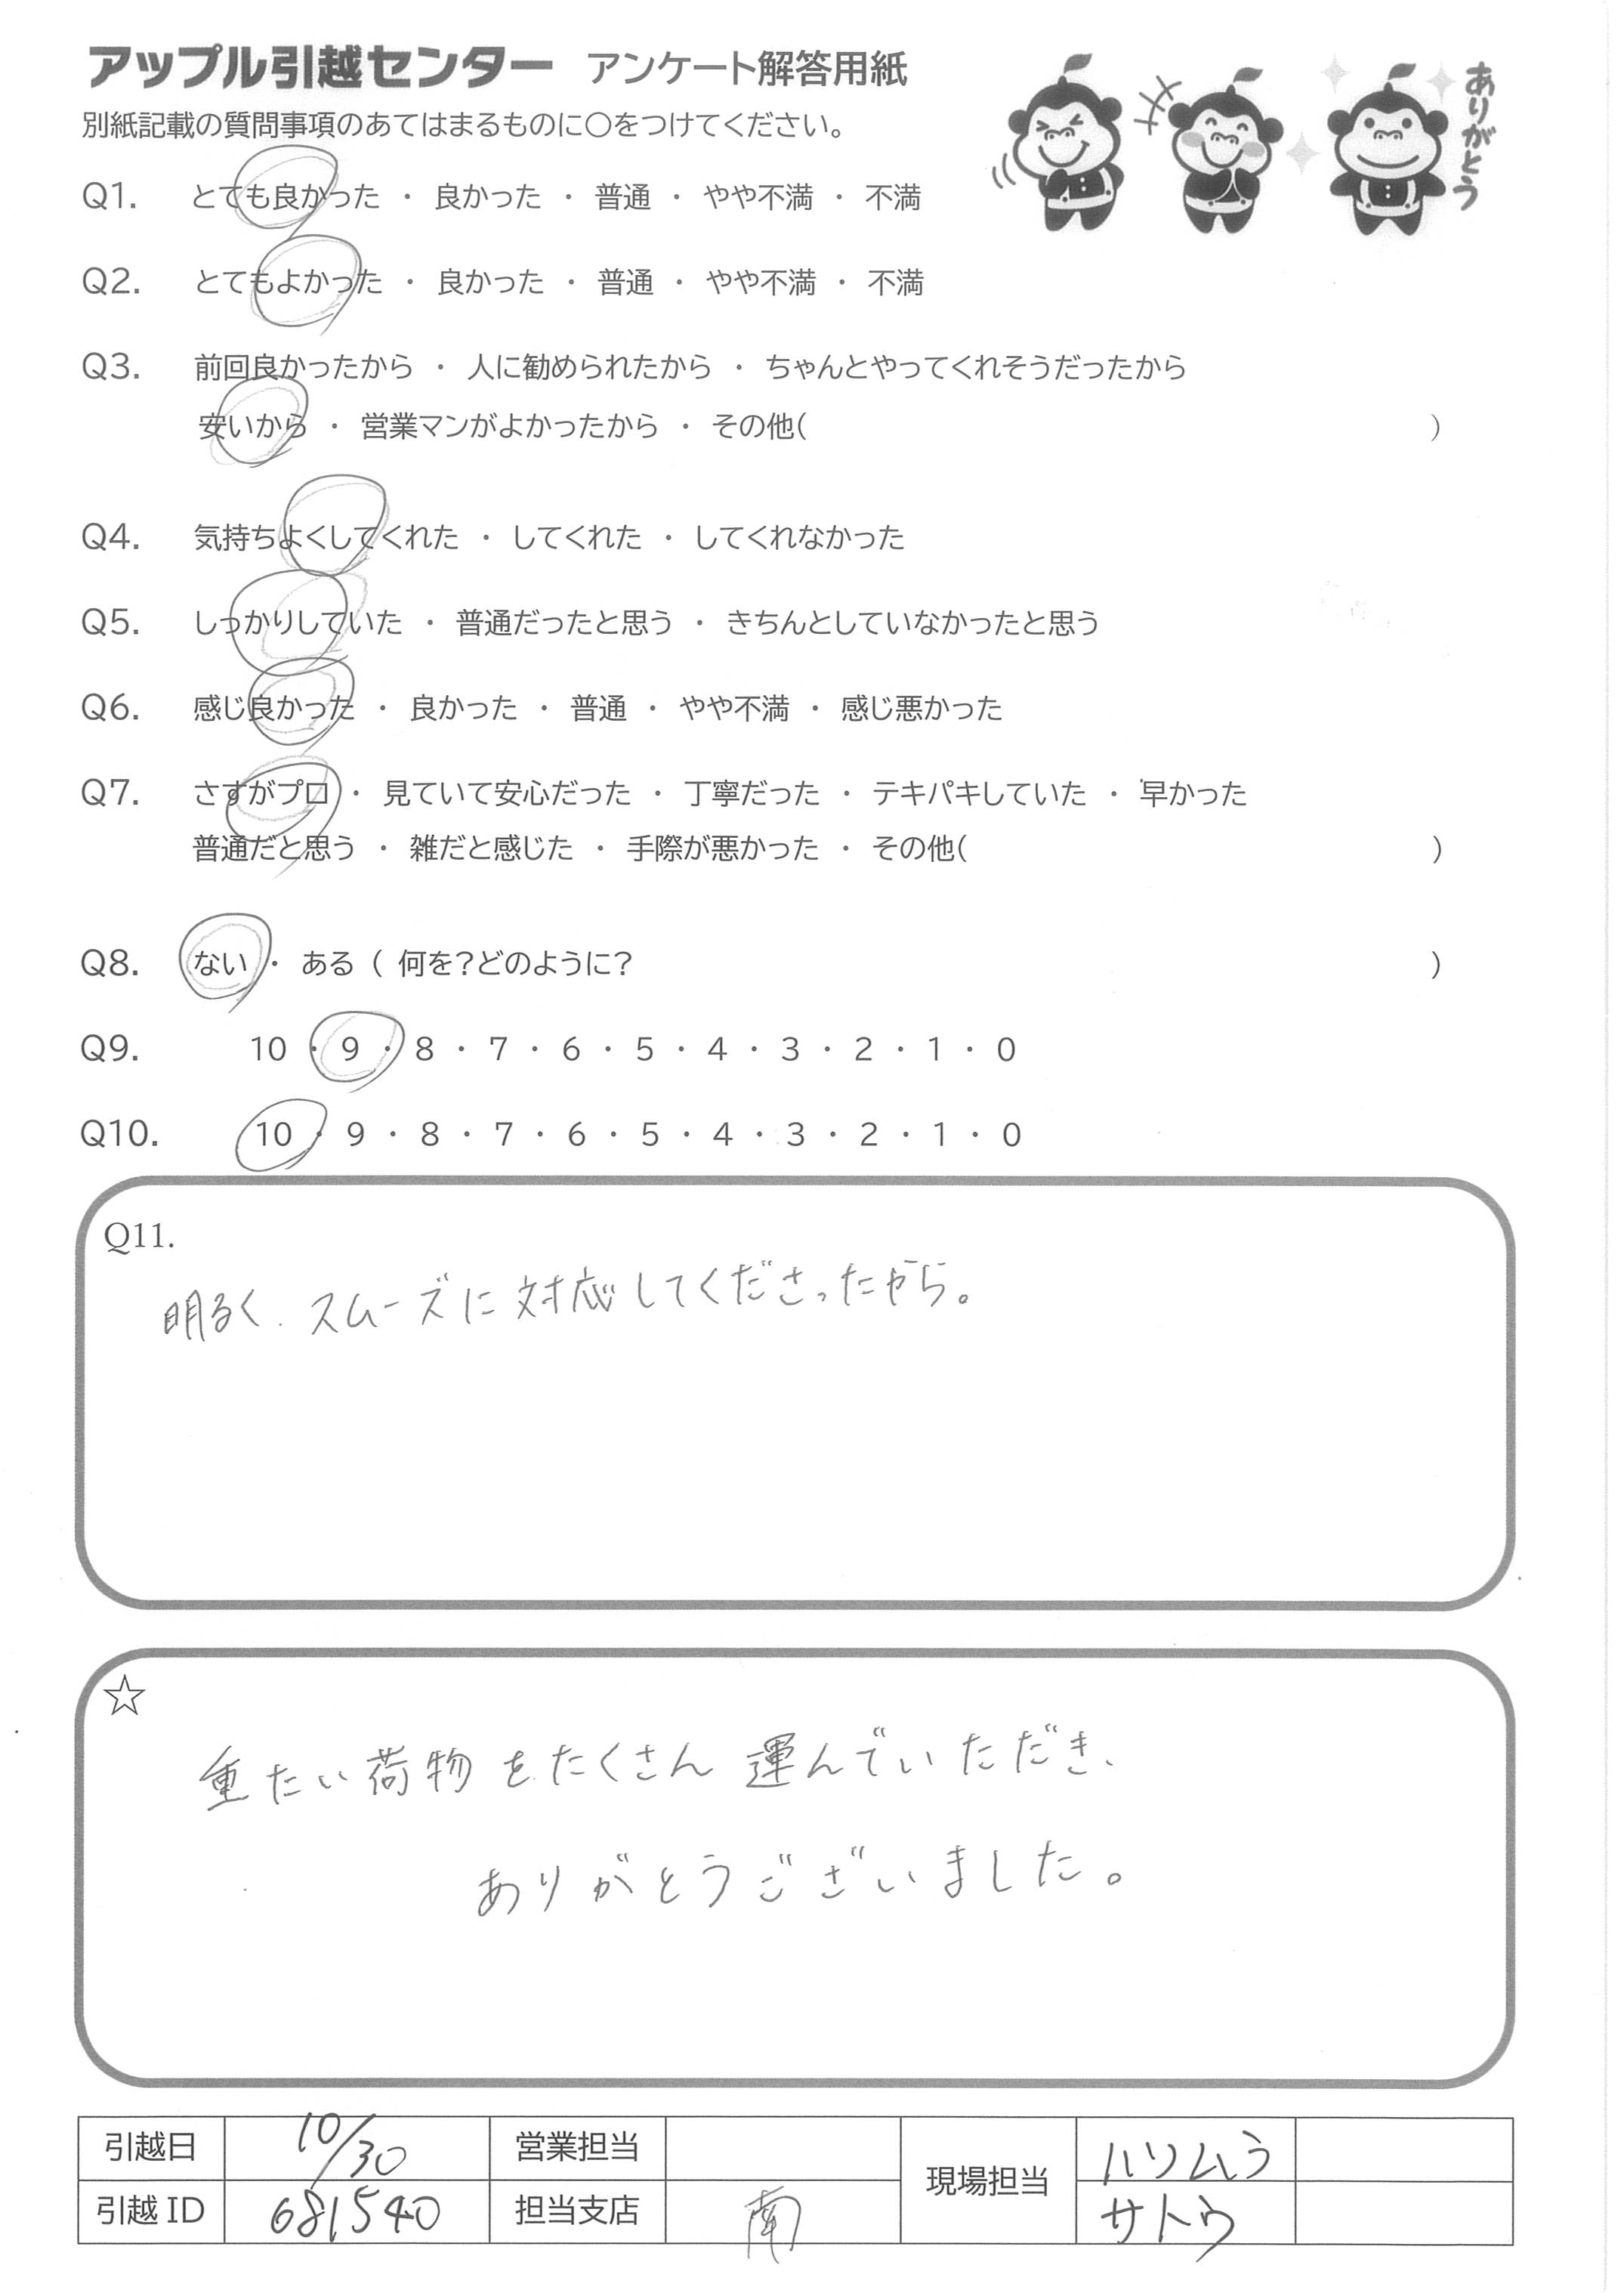 アップル引越センター アンケート解答用紙
ありがとう
別紙記載の質問事項のあてはまるものに○をつけてください。
Q1. とても良かった ・ 良かった ・ 普通 ・ やや不満 ・ 不満
Q2. とてもよかった ・ 良かった ・ 普通 ・ やや不満 ・ 不満
Q3. 前回良かったから ・ 人に勧められたから ・ ちゃんとやってくれそうだったから
安いから ・ 営業マンがよかったから ・ その他( )
Q4. 気持ちよくしてくれた ・ してくれた ・ してくれなかった
Q5. しっかりしていた ・ 普通だったと思う ・ きちんとしていなかったと思う
Q6. 感じ良かった ・ 良かった ・ 普通 ・ やや不満 ・ 感じ悪かった
Q7. さすがプロ ・ 見ていて安心だった ・ 丁寧だった ・ テキパキしていた ・ 早かった
普通だと思う ・ 雑だと感じた ・ 手際が悪かった ・ その他( )
Q8. ない ・ ある ( 何を?どのように? )
Q9. 10 ・ 9 ・ 8 ・ 7 ・ 6 ・ 5 ・ 4 ・ 3 ・ 2 ・ 1 ・ 0
Q10. 10 ・ 9 ・ 8 ・ 7 ・ 6 ・ 5 ・ 4 ・ 3 ・ 2 ・ 1 ・ 0
Q11.
明るく、スムーズに対応してくださったから。
☆
重たい荷物をたくさん運んでいただき、
ありがとうございました。
引越日 10/30 営業担当 現場担当 ハソムラ
引越ID 681540 担当支店 南 サトウ